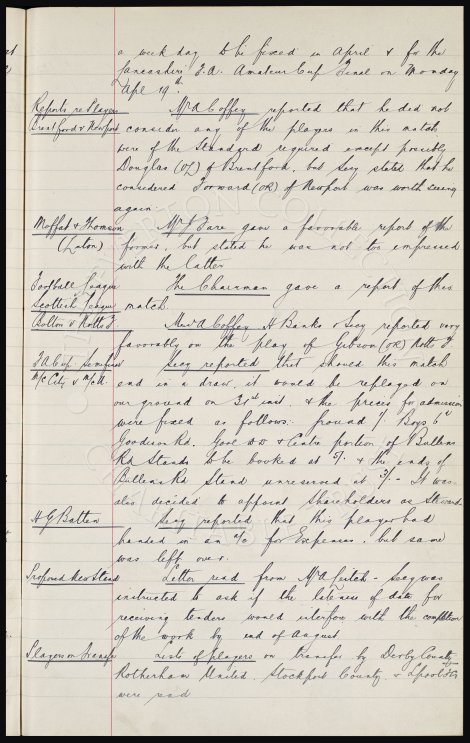 a week day to be fixed in April & for the
Lancashire F.A. Amateur Cup Final on Monday
Apl 19th.
Reports re Players Mr A Coffey reported that he did not
Brentford v Newport consider any of the players in this match
were of the standard required except possibly
Douglas (OL) of Brentford, but Secy stated that he
considered Forward (OR) of Newport was worth seeing
again.
Moffat & Thomson Mr J Fare gave a favorable report of the
(Luton) former, but stated he was not too impressed
with the latter
Football League The Chairman gave a report of this
Scottish League match.
Bolton v Notts F Messrs A Coffey H Banks & Secy reported very
favorably on the play of Gibson (OR) Nott F
F.A Cup Semifinal Secy reported that should this match
M/c City v M/c U. end in a draw, it would be replayed on
our ground on 31st inst. & the prices for admission
were fixed as follows: Ground 1/ Boys 6d
Goodison Rd, Goodison & Centre portion of Bullens
Rd Stands to be booked at 5/- & the ends of
Bullens Rd Stand unreserved at 3/- It was
also decided to appoint Shareholders as Stewards
H G Batten Secy reported that this player had
handed in an a/c for Expenses, but same
was left over.
Proposed New Stand Letter read from Mr A Leitch - Secy was
instructed to ask if the lateness of date for
receiving tenders would interfere with the completion
of the work by end of August
Players on transfer Lists of players on transfer by Derby County
Rotherham United, Stockport County, &
were read